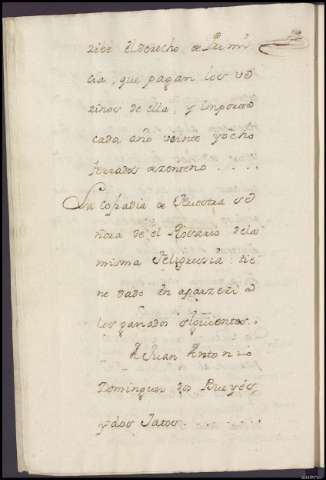 zive el derecho de Primi
cia, que pagan los ve
zinos de ella, y importa
cada año veinte y ocho
ferrados de zenteno ....
La Cofradia de Nuestra Se
ñora de el Rosario de la
misma Feligresia: tie
ne dado en aparzeria
los ganados siguientes.
A Juan Antonio
Dominguez dos Bueyes
y dos Jatos. ....